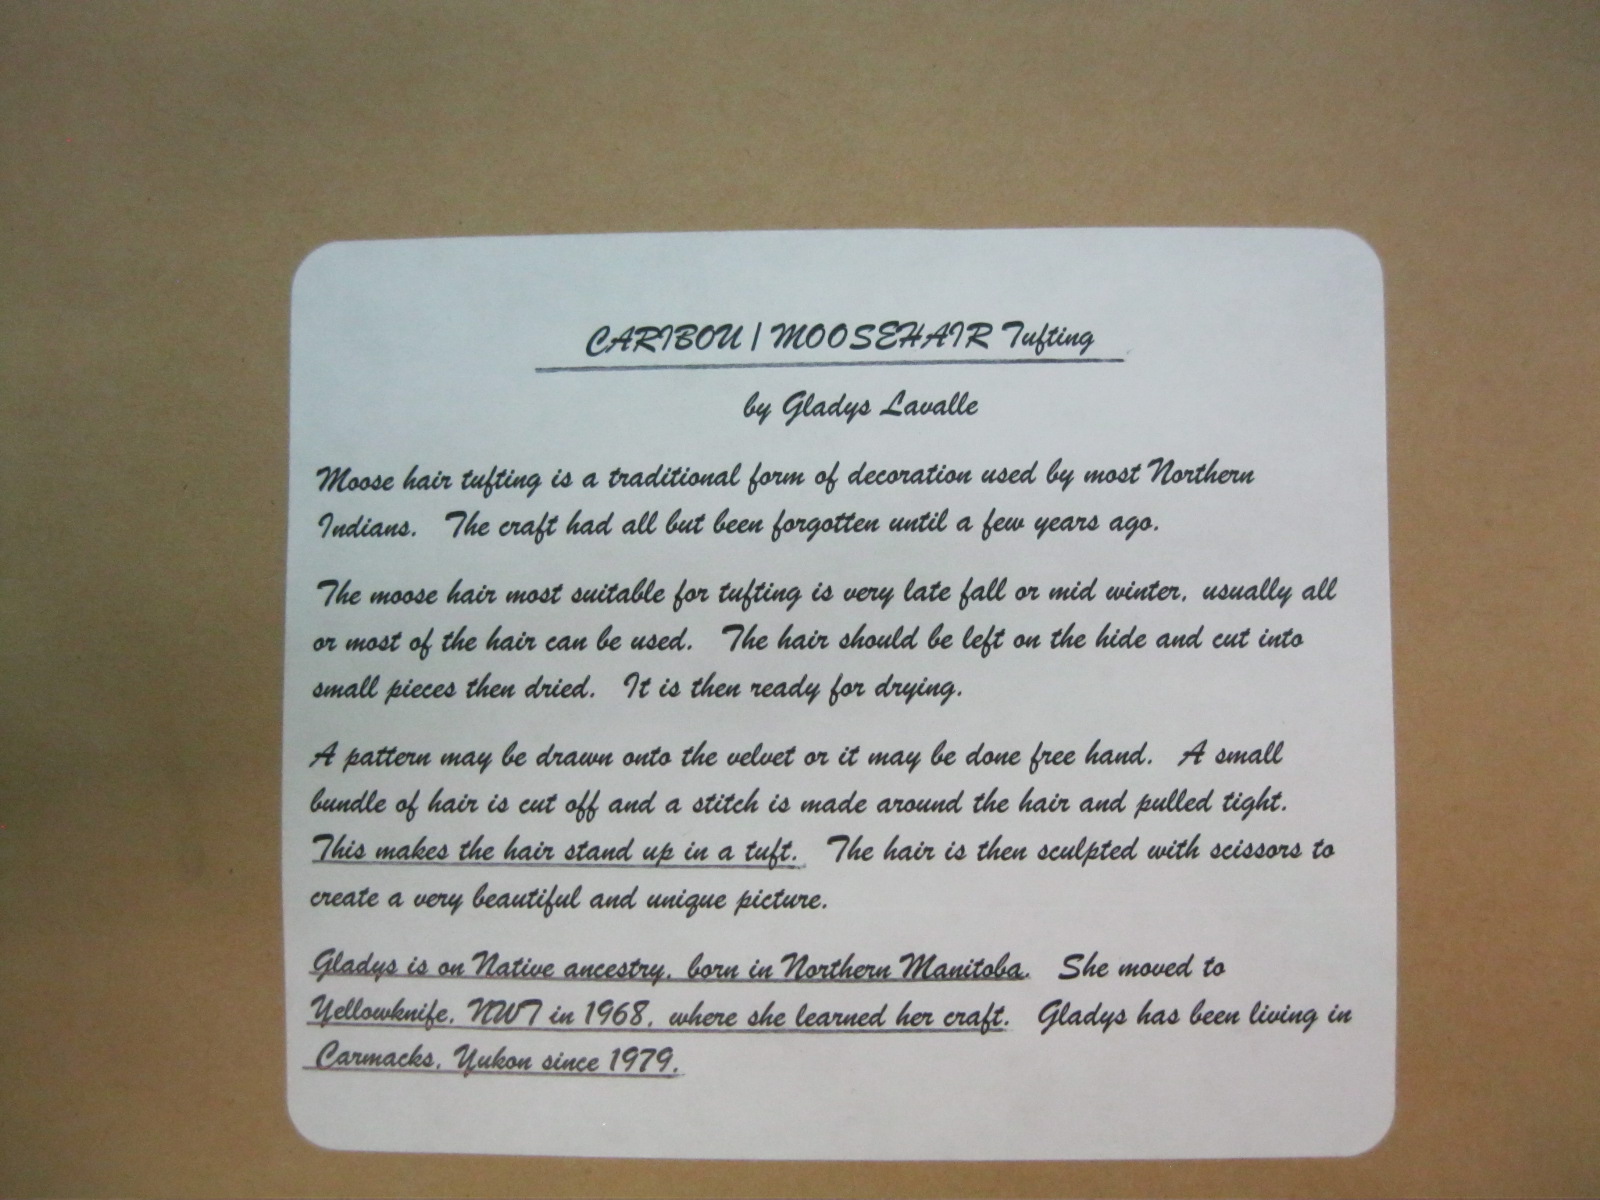 CARIBOU / MOOSEHAIR Tufting
by Gladys Lavalle
Moose hair tufting is a traditional form of decoration used by most Northern
Indians. The craft had all but been forgotten until a few years ago.
The moose hair most suitable for tufting is very late fall or mid winter, usually all
or most of the hair can be used. The hair should be left on the hide and cut into
small pieces then dried. It is then ready for drying.
A pattern may be drawn onto the velvet or it may be done free hand. A small
bundle of hair is cut off and a stitch is made around the hair and pulled tight.
This makes the hair stand up in a tuft. The hair is then sculpted with scissors to
create a very beautiful and unique picture.
Gladys is on Native ancestry, born in Northern Manitoba. She moved to
Yellowknife, NWT in 1968, where she learned her craft. Gladys has been living in
Carmacks, Yukon since 1979.